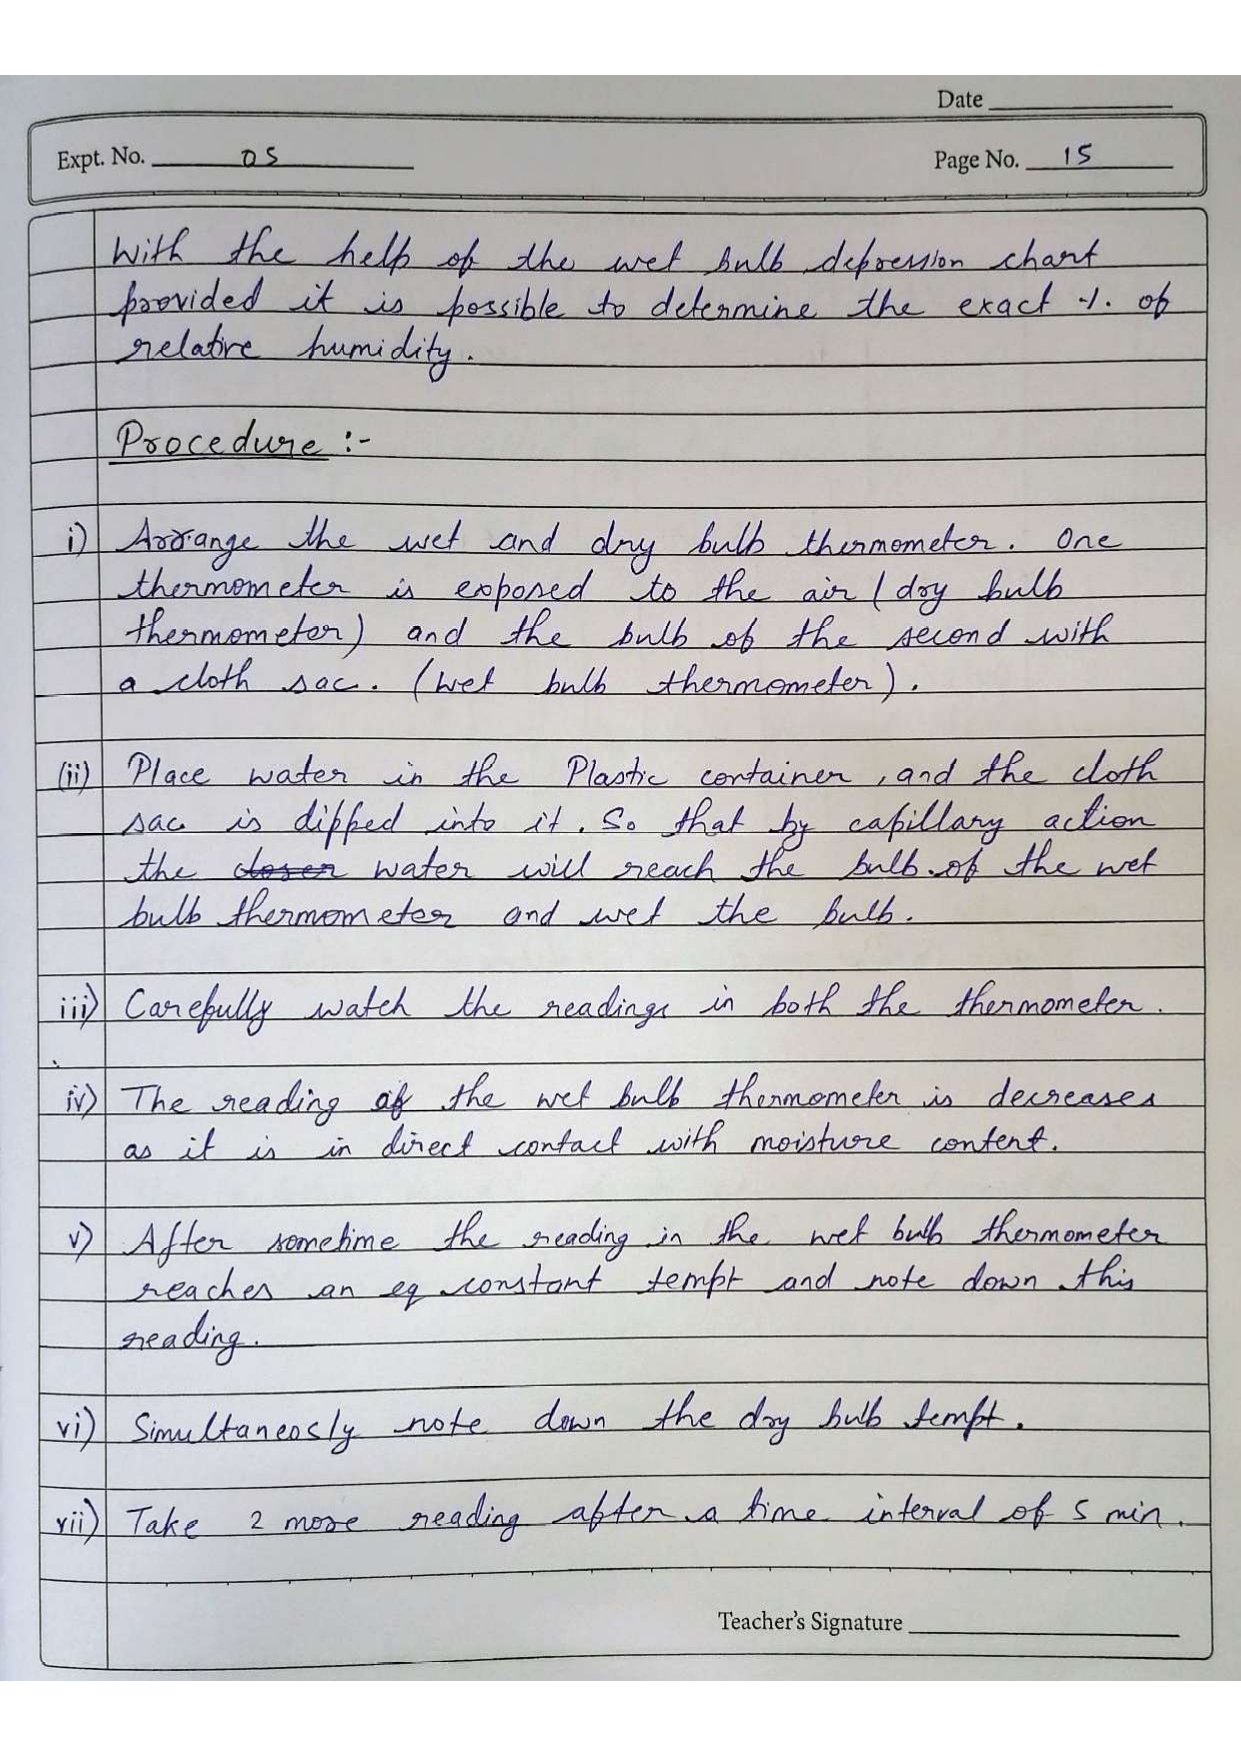 Date
Expt. No. 05
Page No. 15
With the help of the wet bulb depression chart
provided it is possible to determine the exact % of
relative humidity.
Procedure :-
i) Arrange the wet and dry bulb thermometer. One
thermometer is exposed to the air (dry bulb
thermometer) and the bulb of the second with
a cloth sac. (wet bulb thermometer).
(ii) Place water in the Plastic container, and the cloth
sac is dipped into it. So that by capillary action
the water will reach the bulb of the wet
bulb thermometer and wet the bulb.
iii) Carefully watch the readings in both the thermometer.
iv) The reading of the wet bulb thermometer is decreases
as it is in direct contact with moisture content.
v) After sometime the reading in the wet bulb thermometer
reaches an eq constant tempt and note down this
reading.
vi) Simultaneosly note down the dry bulb tempt.
vii) Take 2 more reading after a time interval of 5 min.
Teacher's Signature